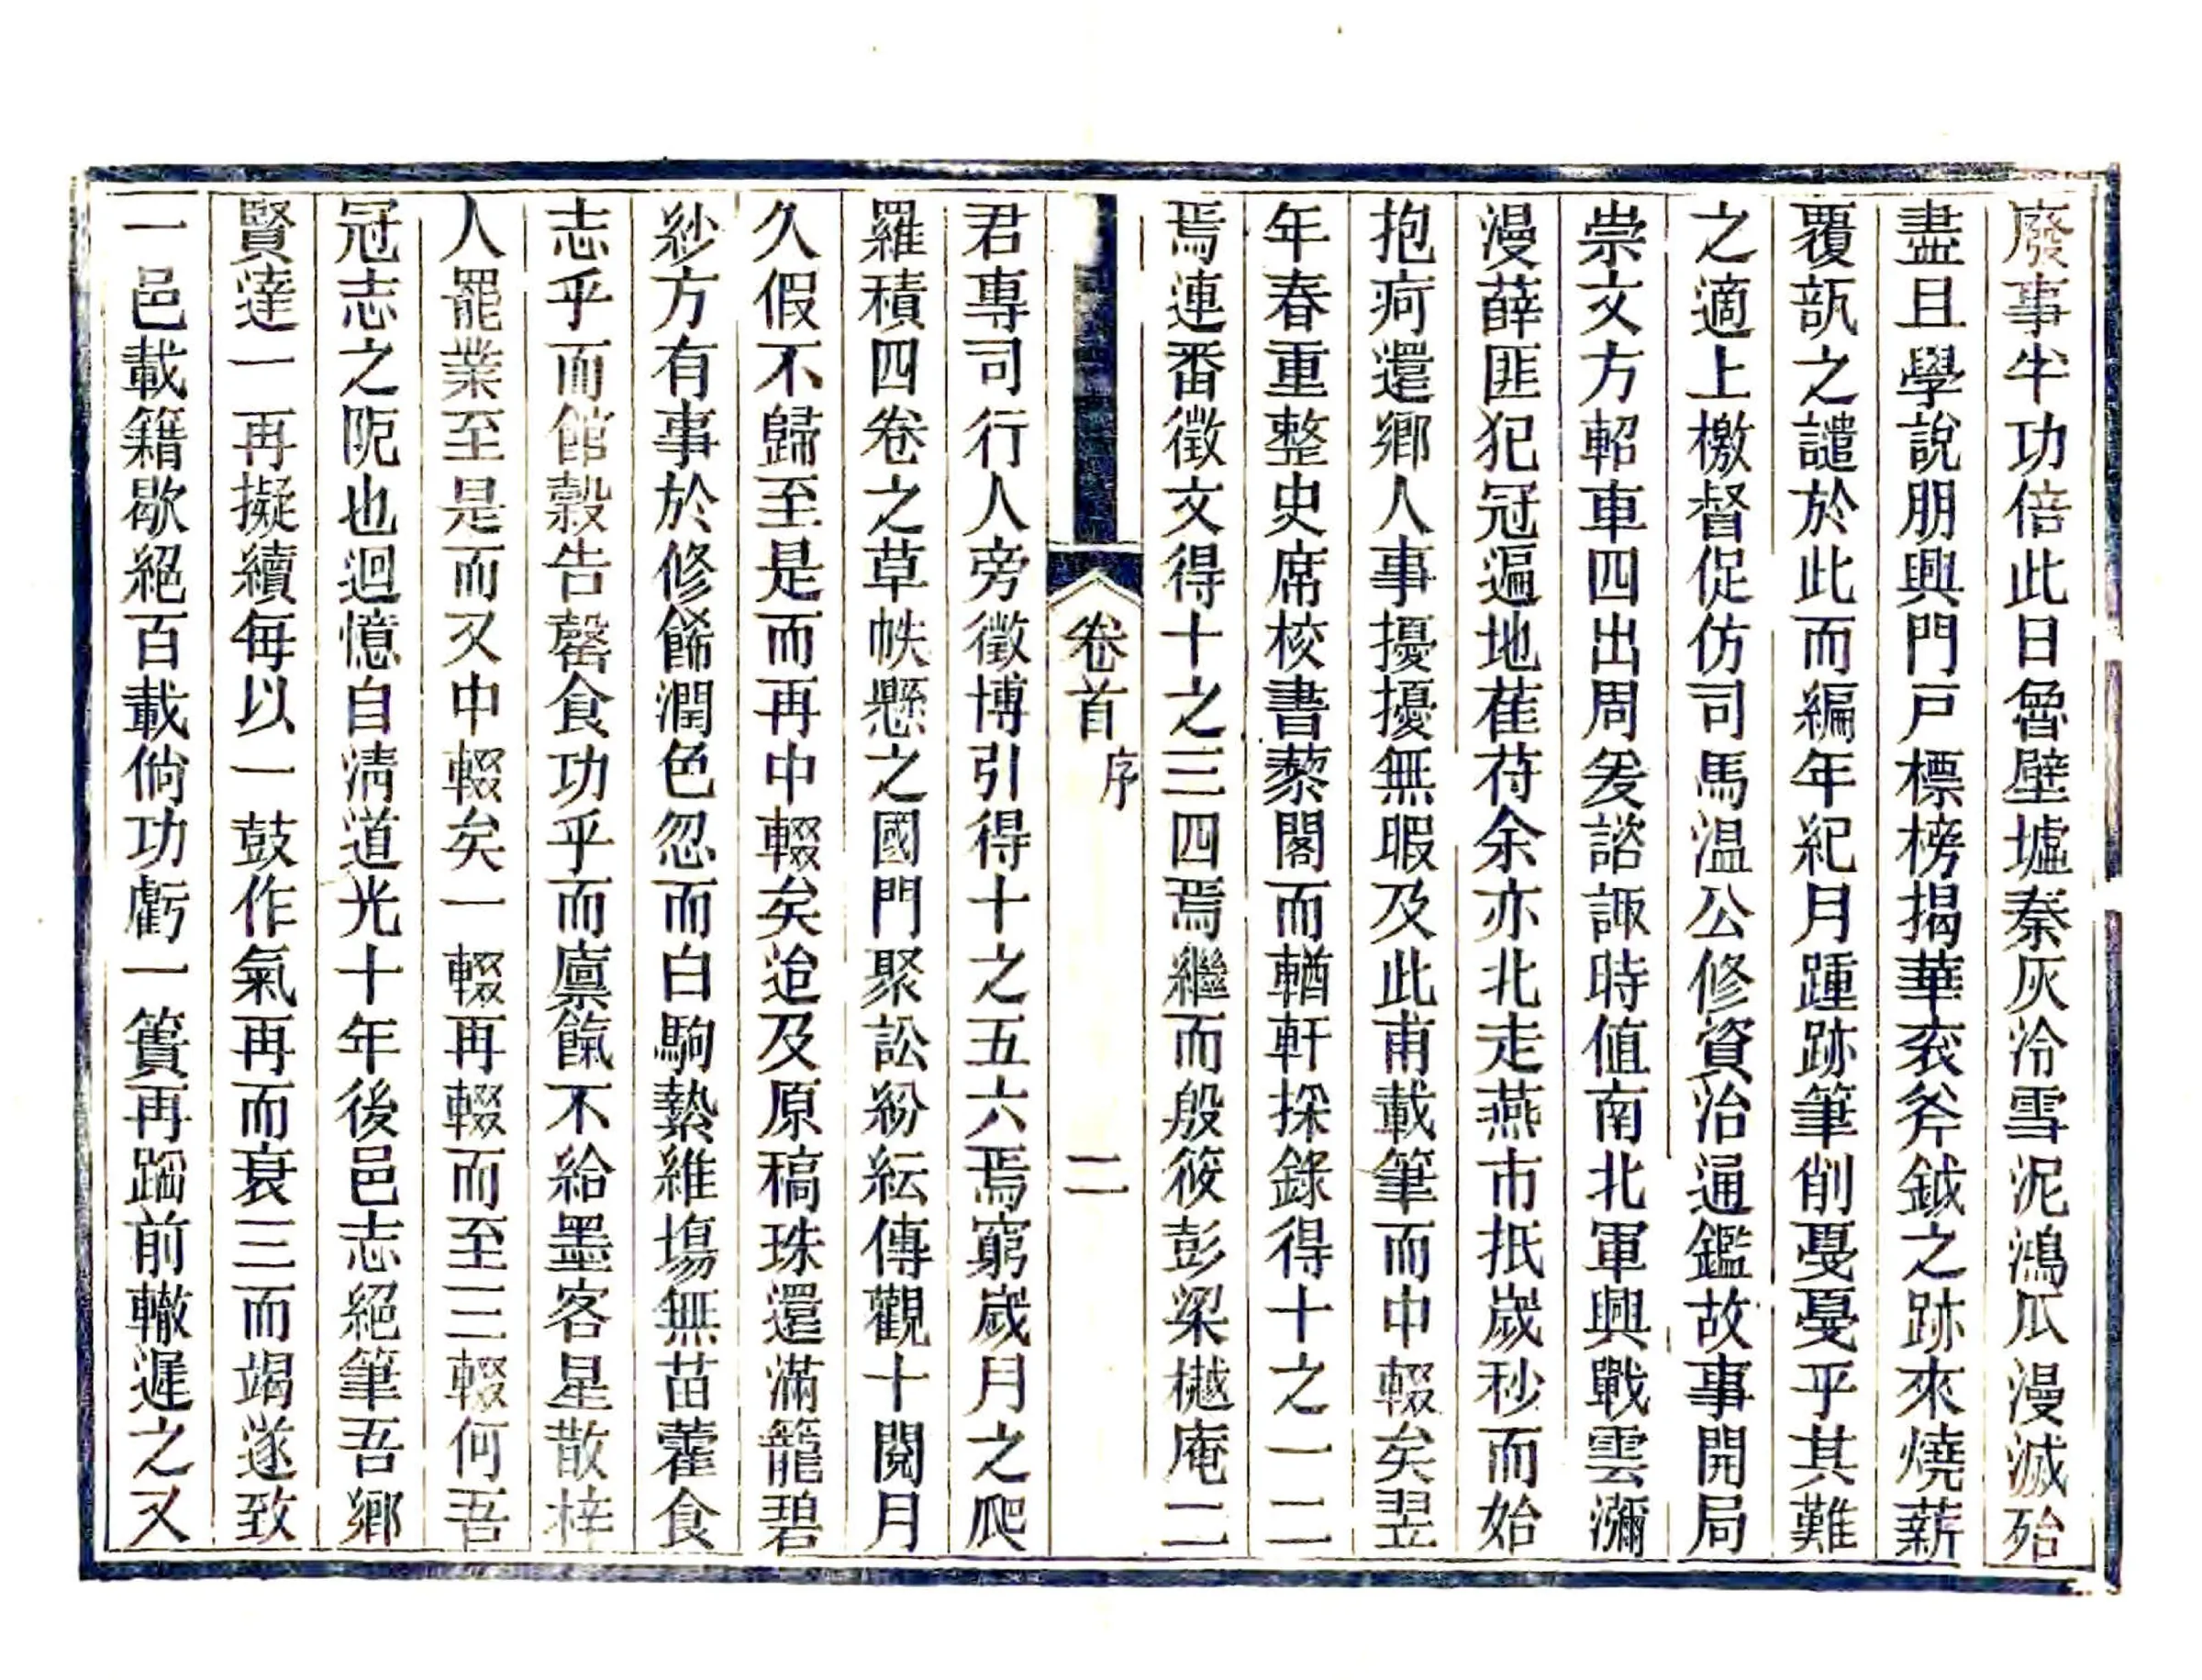 廢事半功倍此日魯壁墟秦灰冷雪泥鴻瓜漫滅殆
盡且學說朋興門戸標榜揭華衮斧鉞之跡來燒薪
覆瓿之譴於此而編年紀月踵跡筆削戞戞乎其難
之適上檄督促仿司馬温公修資治通鑑故事開局
崇文方軺車四出周爰諮諏時值南北軍興戰雲瀰
漫薛匪犯冠遍地萑苻余亦北走燕市抵歲秒而始
抱疴還鄉人事擾擾無暇及此甫載筆而中輟矣翌
年春重整史席校書藜閣而輶軒採錄得十之一二
焉連番徵文得十之三四焉繼而殷筱彭梁樾庵二
卷首
序
二
君專司行人旁徵博引得十之五六焉窮歲月之爬
羅積四卷之草帙懸之國門聚訟紛紜傳觀十閱月
久假不歸至是而再中輟矣迨及原稿珠還滿籠碧
紗方有事於修餙潤色忽而白駒縶維塲無苗藿食
志乎而館榖告罄食功乎而廩餼不給墨客星散梓
人罷業至是而又中輟矣一輟再輟而至三輟何吾
冠志之阨也迴憶自淸道光十年後邑志絕筆吾鄉
賢達一再擬續每以一鼓作氣再而衰三而竭遂致
一邑載籍歇絕百載倘功虧一簣再蹈前轍遲之又